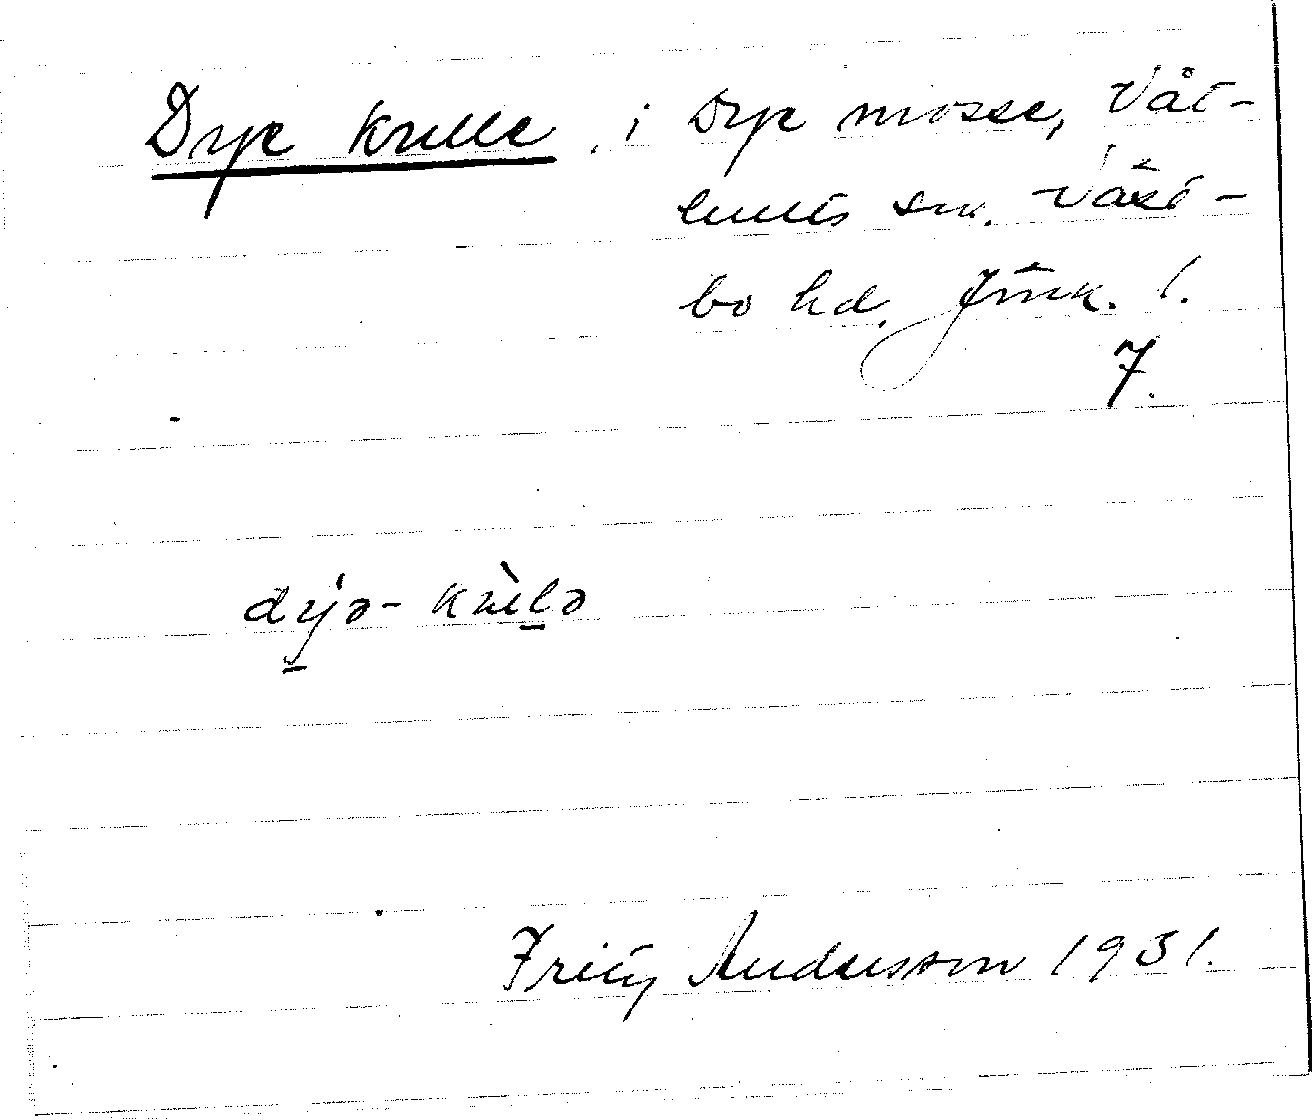 Dye kulle, i Dye mosse, Våt-
hults sn. Väst-
bo hd. Jönk. l.
7.
dýə-kùlə
Fritz Andersson 1931.